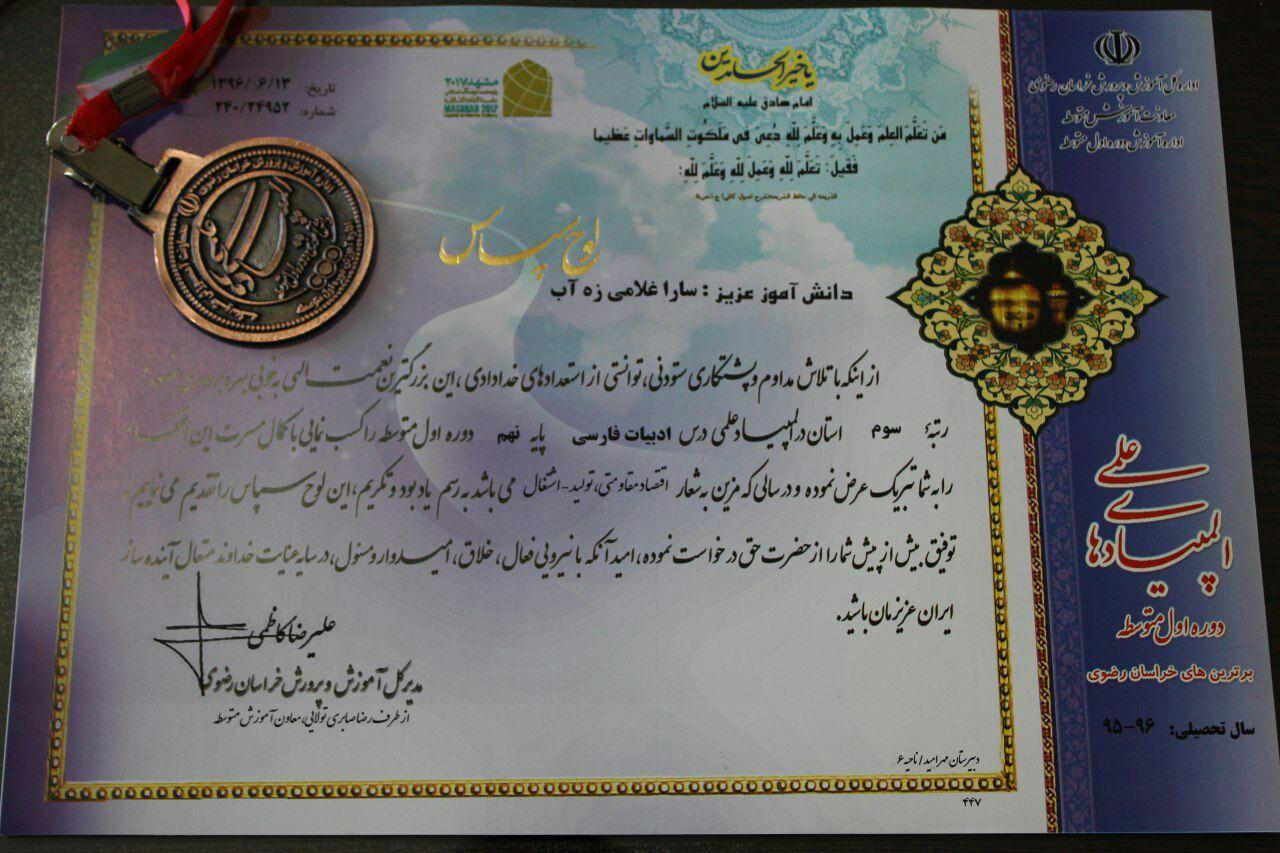 اداره کل آموزش و پرورش خراسان رضوی
معاونت آموزش متوسطه
اداره آموزش دوره اول متوسطه
المپیادهای
علمی
دوره اول متوسطه
برترین های خراسان رضوی
سال تحصیلی: ۹۶-۹۵
یا خیر الحامدین
امام صادق علیه السلام
مَن تَعَلَّمَ العِلمَ وَعَمِلَ بِهِ وَعَلَّمَ لِلّهِ دُعِیَ فی مَلَکُوتِ السَّماواتِ عَظیما
فَقیلَ: تَعَلَّمَ لِلّهِ وَعَمِلَ لِلّهِ وَعَلَّمَ لِلّهِ:
مشهد ۲۰۱۷
MASHHAD 2017
تاریخ: ۱۳۹۶/۰۶/۱۳
شماره: ۲۴۰/۲۴۹۵۲
لوح سپاس
دانش آموز عزیز : سارا غلامی زه آب
از اینکه با تلاش مداوم و پشتکاری ستودنی، توانستی از استعدادهای خدادادی، این بزرگترین نعمت الهی به خوبی بهره برداری نموده
رتبهٔ سوم استان در المپیاد علمی درس ادبیات فارسی پایه نهم دوره اول متوسطه را کسب نمایی با کمال مسرت این افتخار
را به شما تبریک عرض نموده و در سالی که مزین به شعار اقتصاد مقاومتی، تولید-اشتغال می باشد به رسم یادبود و تکریم، این لوح سپاس را تقدیم می نماییم.
توفیق بیش از پیش شما را از حضرت حق درخواست نموده، امید آنکه با نیرویی فعال، خلاق، امیدوار و مسئول، در سایه عنایت خداوند متعال آینده ساز
ایران عزیزمان باشید.
علیرضا کاظمی
مدیرکل آموزش و پرورش خراسان رضوی
از طرف رضا صابری تولایی، معاون آموزش متوسطه
دبیرستان مهر امید / ناحیه ۶
۴۴۷